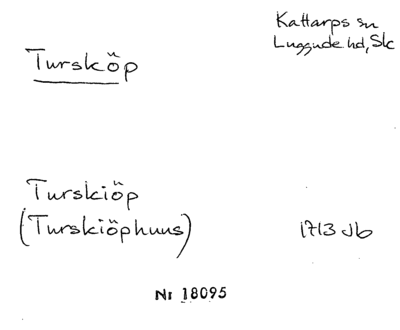 Kattarps sn
Turskö̈p
Luggude hd, Skc
Turskiöp
(Turskiöphuus)
1713 Jb
Nr 18095